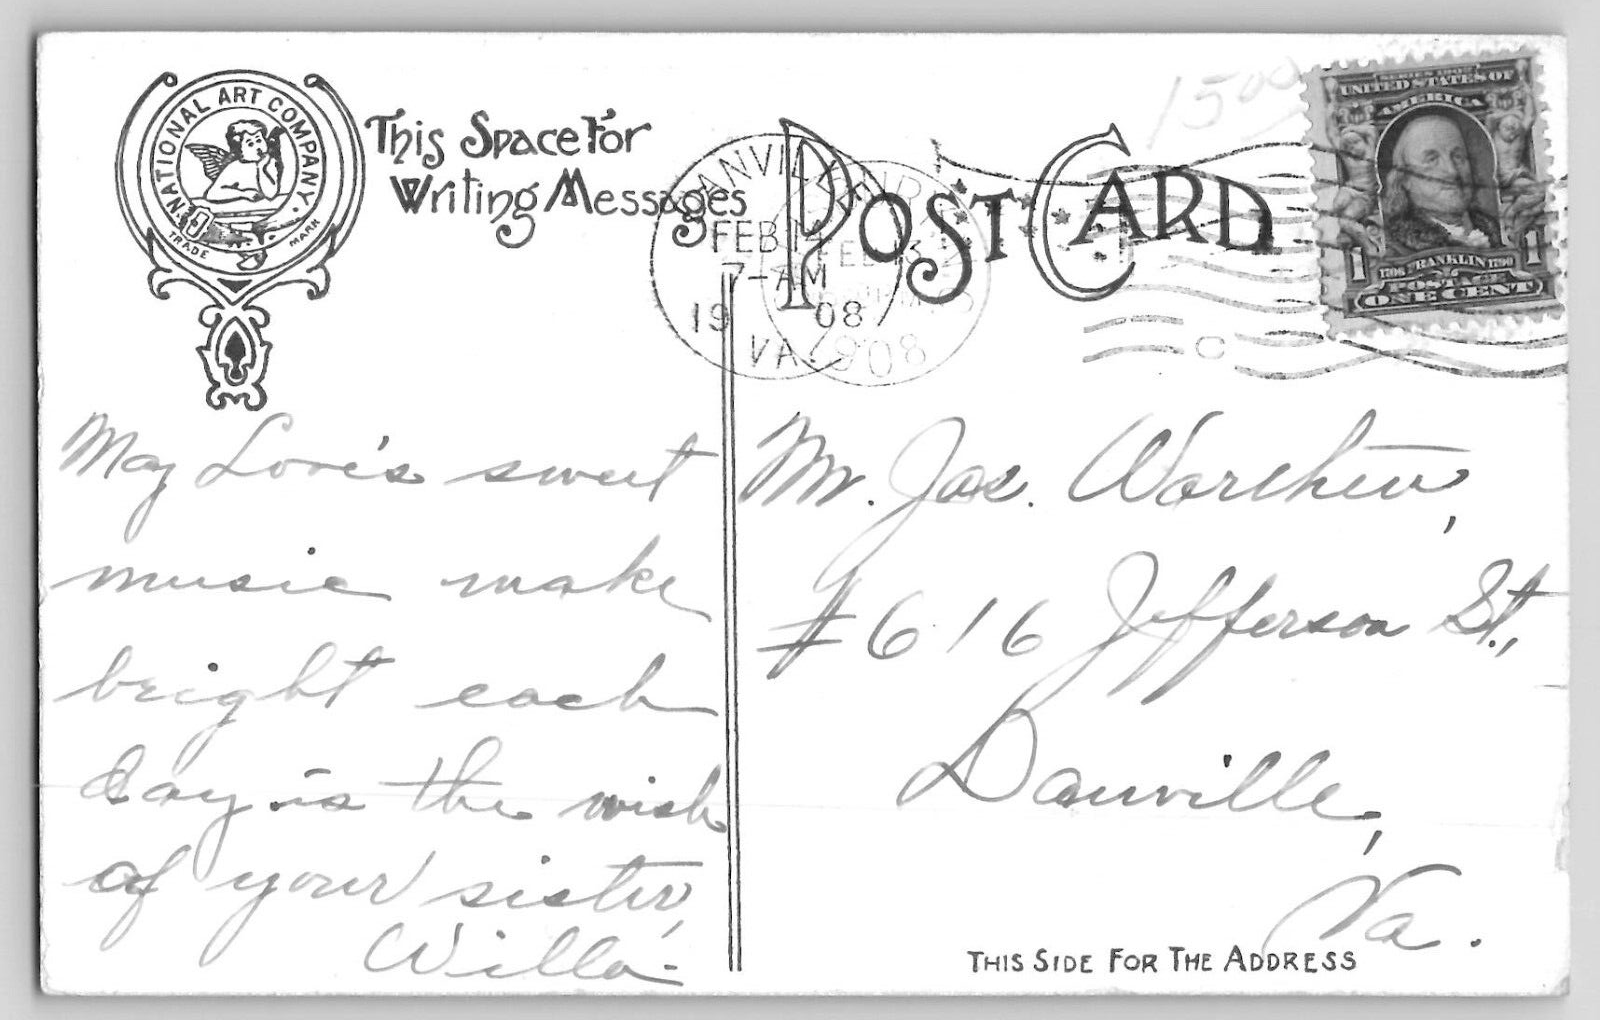 NATIONAL ART COMPANY.
TRADE MARK
This Space For
Writing Messages
POST CARD
1500
SERIES 1902
UNITED STATES OF
AMERICA
1 1706 FRANKLIN 1790 1
POSTAGE
ONE CENT
DANVILLE
FEB
7-AM
1908
VA.
FEB 13
1908
May Love's sweet
music make
bright each
day is the wish
of your sister,
Willa-
Mr. Jas.
#616 Jefferson St.,
Danville,
Va.
THIS SIDE FOR THE ADDRESS